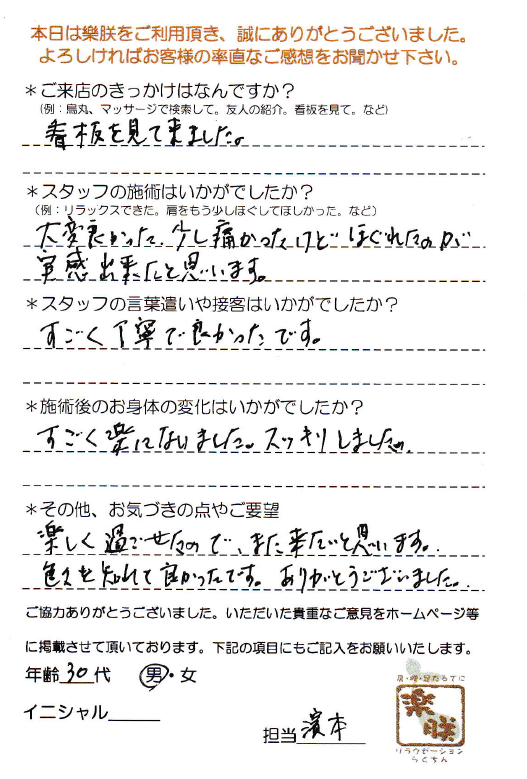 本日は樂朕をご利用頂き、誠にありがとうございました。
よろしければお客様の率直なご感想をお聞かせ下さい。
＊ご来店のきっかけはなんですか？
(例：烏丸、マッサージで検索して。友人の紹介。看板を見て。など)
看板を見て来ました。
＊スタッフの施術はいかがでしたか？
(例：リラックスできた。肩をもう少しほぐしてほしかった。など)
大変良かった、少し痛かったけど ほぐれたのが
実感出来たと思います。
＊スタッフの言葉遣いや接客はいかがでしたか？
すごく丁寧で良かったです。
＊施術後のお身体の変化はいかがでしたか？
すごく楽になりました。スッキリしました。
＊その他、お気づきの点やご要望
楽しく過ごせたので、また来たいと思います。
色々を知れて良かったです。ありがとうございました。
ご協力ありがとうございました。いただいた貴重なご意見をホームページ等
に掲載させて頂いております。下記の項目にもご記入をお願いいたします。
年齢 30 代 男・女
イニシャル
担当 濱本
肩・腰・足たもてに
楽朕
リラクゼーション
らくちん